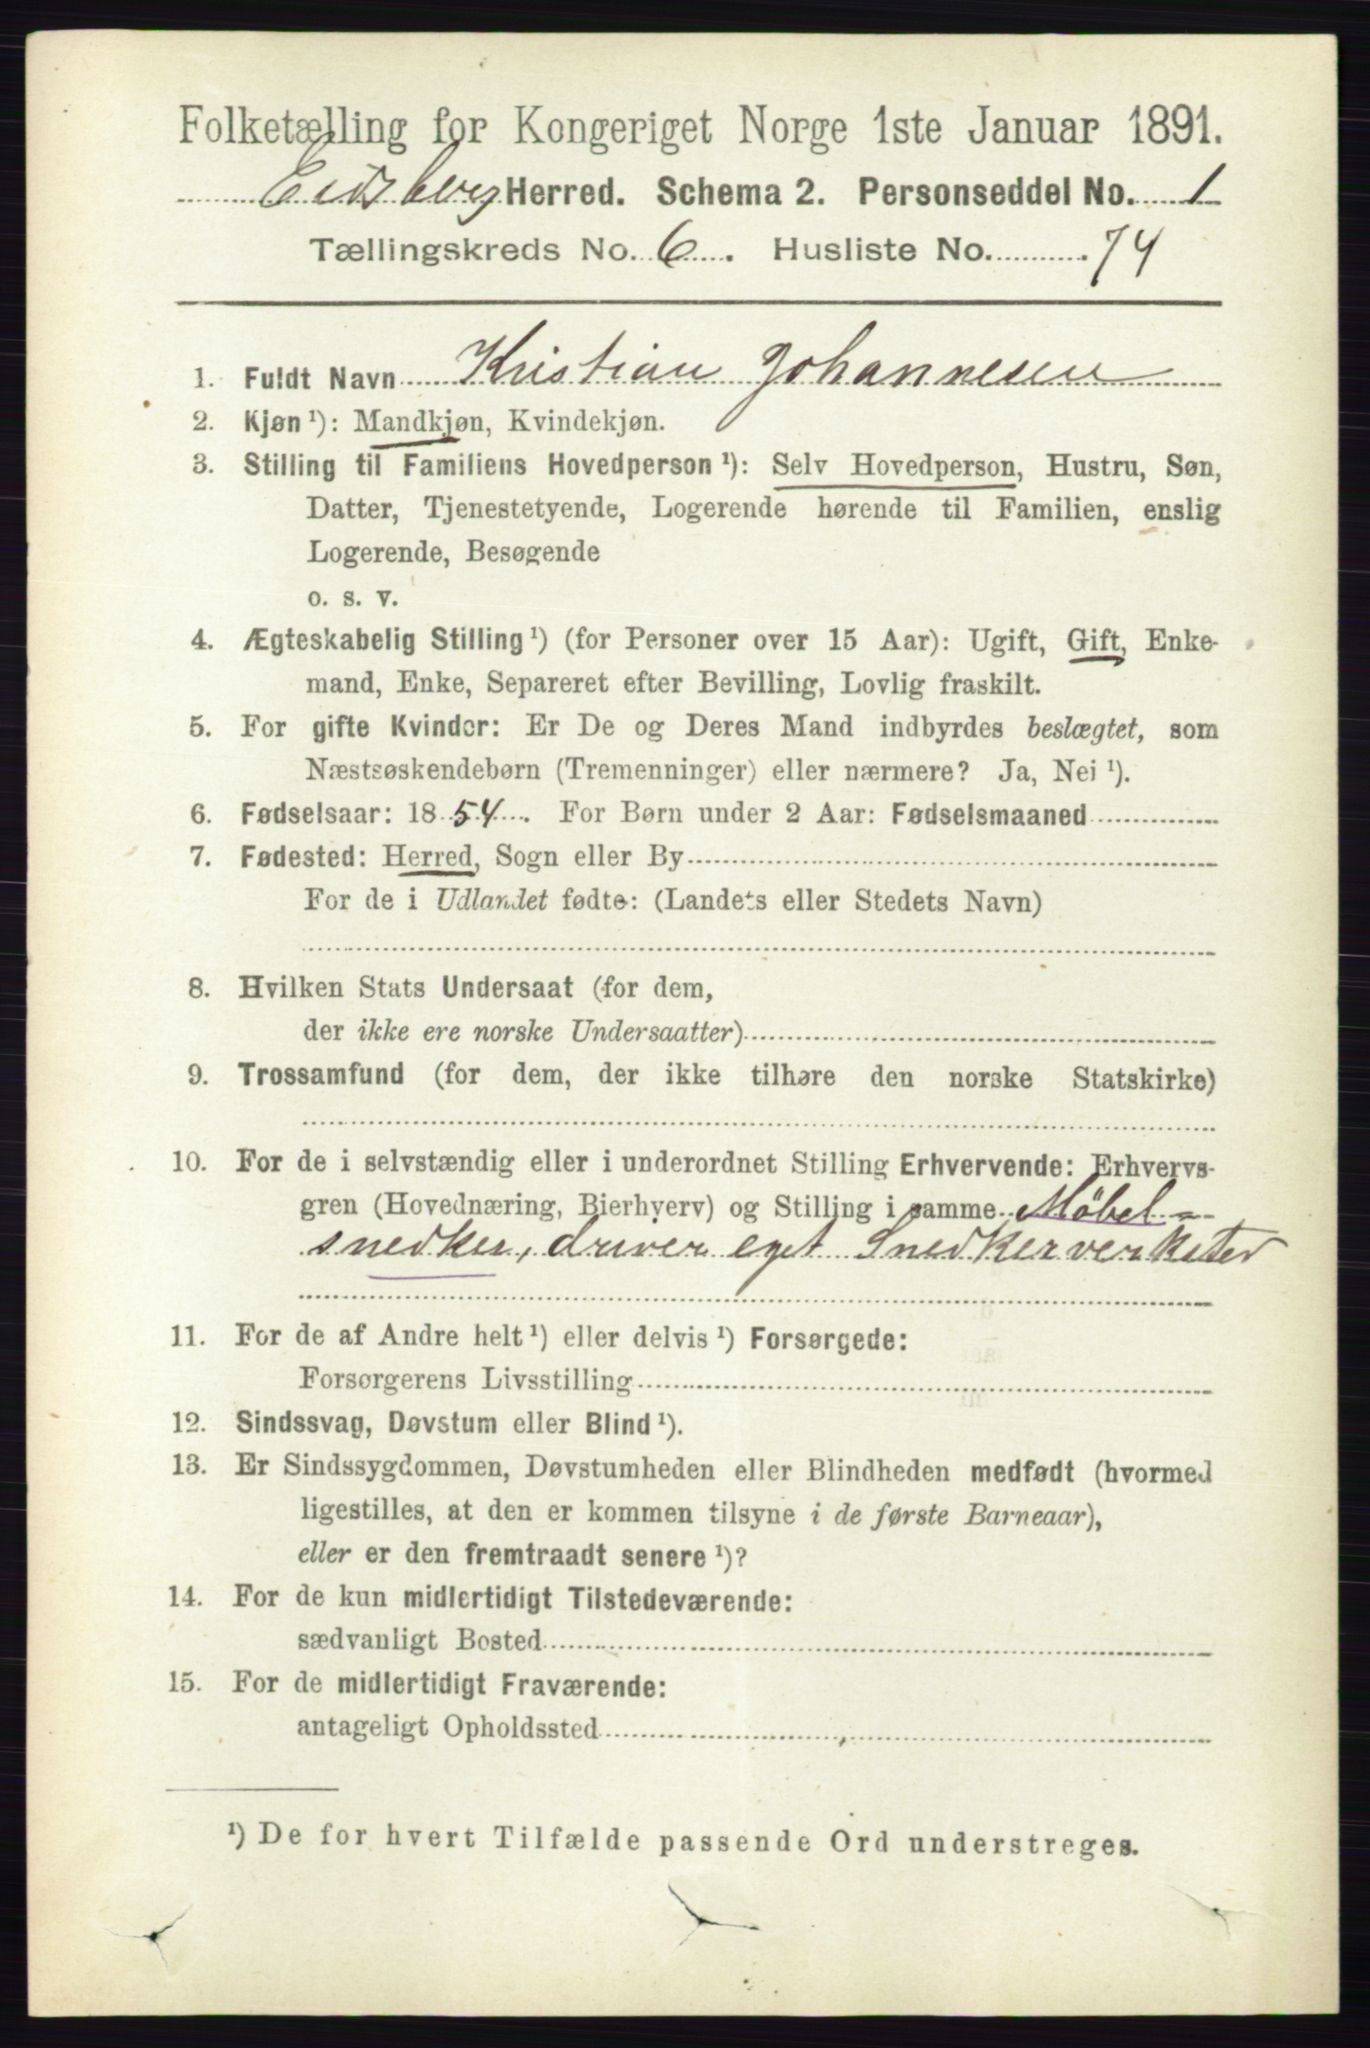 Folketælling for Kongeriget Norge 1ste Januar 1891.
Eidsberg Herred. Schema 2. Personseddel No. 1
Tællingskreds No. 6. Husliste No. 74
1. Fuldt Navn Kristian Johannesen
2. Kjøn ¹): Mandkjøn, Kvindekjøn.
3. Stilling til Familiens Hovedperson ¹): Selv Hovedperson, Hustru, Søn,
Datter, Tjenestetyende, Logerende hørende til Familien, enslig
Logerende, Besøgende
o. s. v.
4. Ægteskabelig Stilling ¹) (for Personer over 15 Aar): Ugift, Gift, Enke-
mand, Enke, Separeret efter Bevilling, Lovlig fraskilt.
5. For gifte Kvinder: Er De og Deres Mand indbyrdes beslægtet, som
Næstsøskendebørn (Tremenninger) eller nærmere? Ja, Nei ¹).
6. Fødselsaar: 1854. For Børn under 2 Aar: Fødselsmaaned
7. Fødested: Herred, Sogn eller By
For de i Udlandet fødte: (Landets eller Stedets Navn)
8. Hvilken Stats Undersaat (for dem,
der ikke ere norske Undersaatter)
9. Trossamfund (for dem, der ikke tilhøre den norske Statskirke)
10. For de i selvstændig eller i underordnet Stilling Erhvervende: Erhvervs-
gren (Hovednæring, Bierhverv) og Stilling i samme Möbel-
snedker, driver eget Snedkerverksted
11. For de af Andre helt ¹) eller delvis ¹) Forsørgede:
Forsørgerens Livsstilling
12. Sindssvag, Døvstum eller Blind ¹).
13. Er Sindssygdommen, Døvstumheden eller Blindheden medfødt (hvormed
ligestilles, at den er kommen tilsyne i de første Barneaar),
eller er den fremtraadt senere ¹)?
14. For de kun midlertidigt Tilstedeværende:
sædvanligt Bosted
15. For de midlertidigt Fraværende:
antageligt Opholdssted
¹) De for hvert Tilfælde passende Ord understreges.